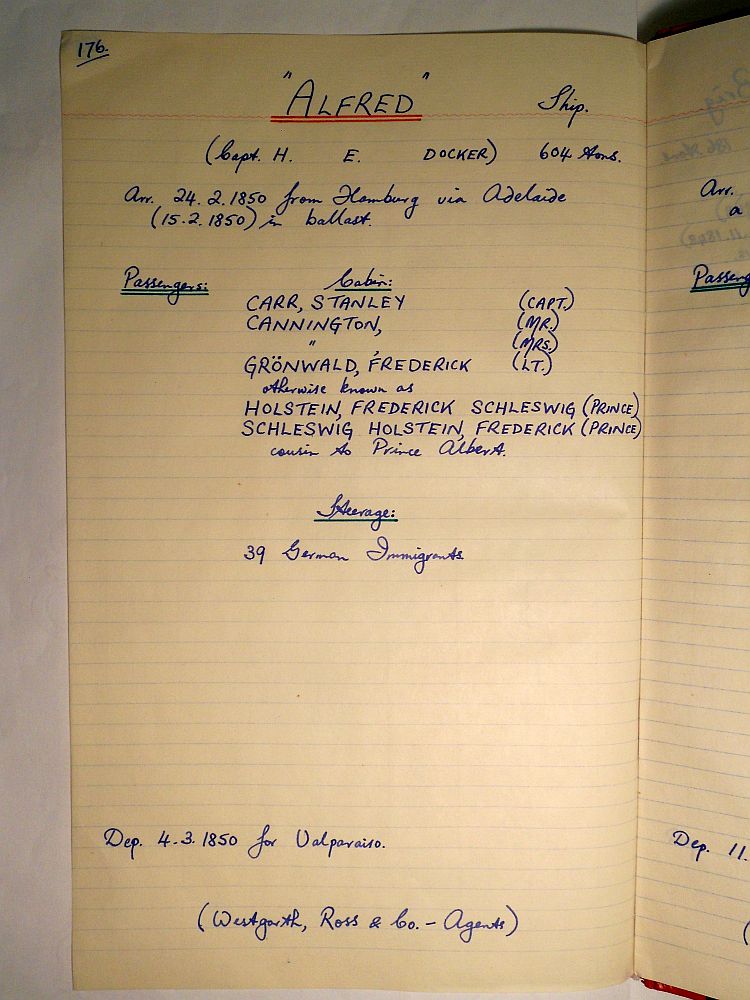 176.
"ALFRED" Ship.
(Capt. H. E. DOCKER) 604 tons.
Arr. 24.2.1850 from Hamburg via Adelaide
(15.2.1850) in ballast.
Passengers: Cabin:
CARR, STANLEY (CAPT.)
CANNINGTON, (MR.)
" (MRS.)
GRÖNWALD, FREDERICK (LT.)
otherwise known as
HOLSTEIN, FREDERICK SCHLESWIG (PRINCE)
SCHLESWIG HOLSTEIN, FREDERICK (PRINCE)
cousin to Prince Albert.
Steerage:
39 German Immigrants
Dep. 4.3.1850 for Valparaiso.
(Westgarth, Ross & Co. - Agents)
Arr.
a
Passeng
Dep. 11.
(